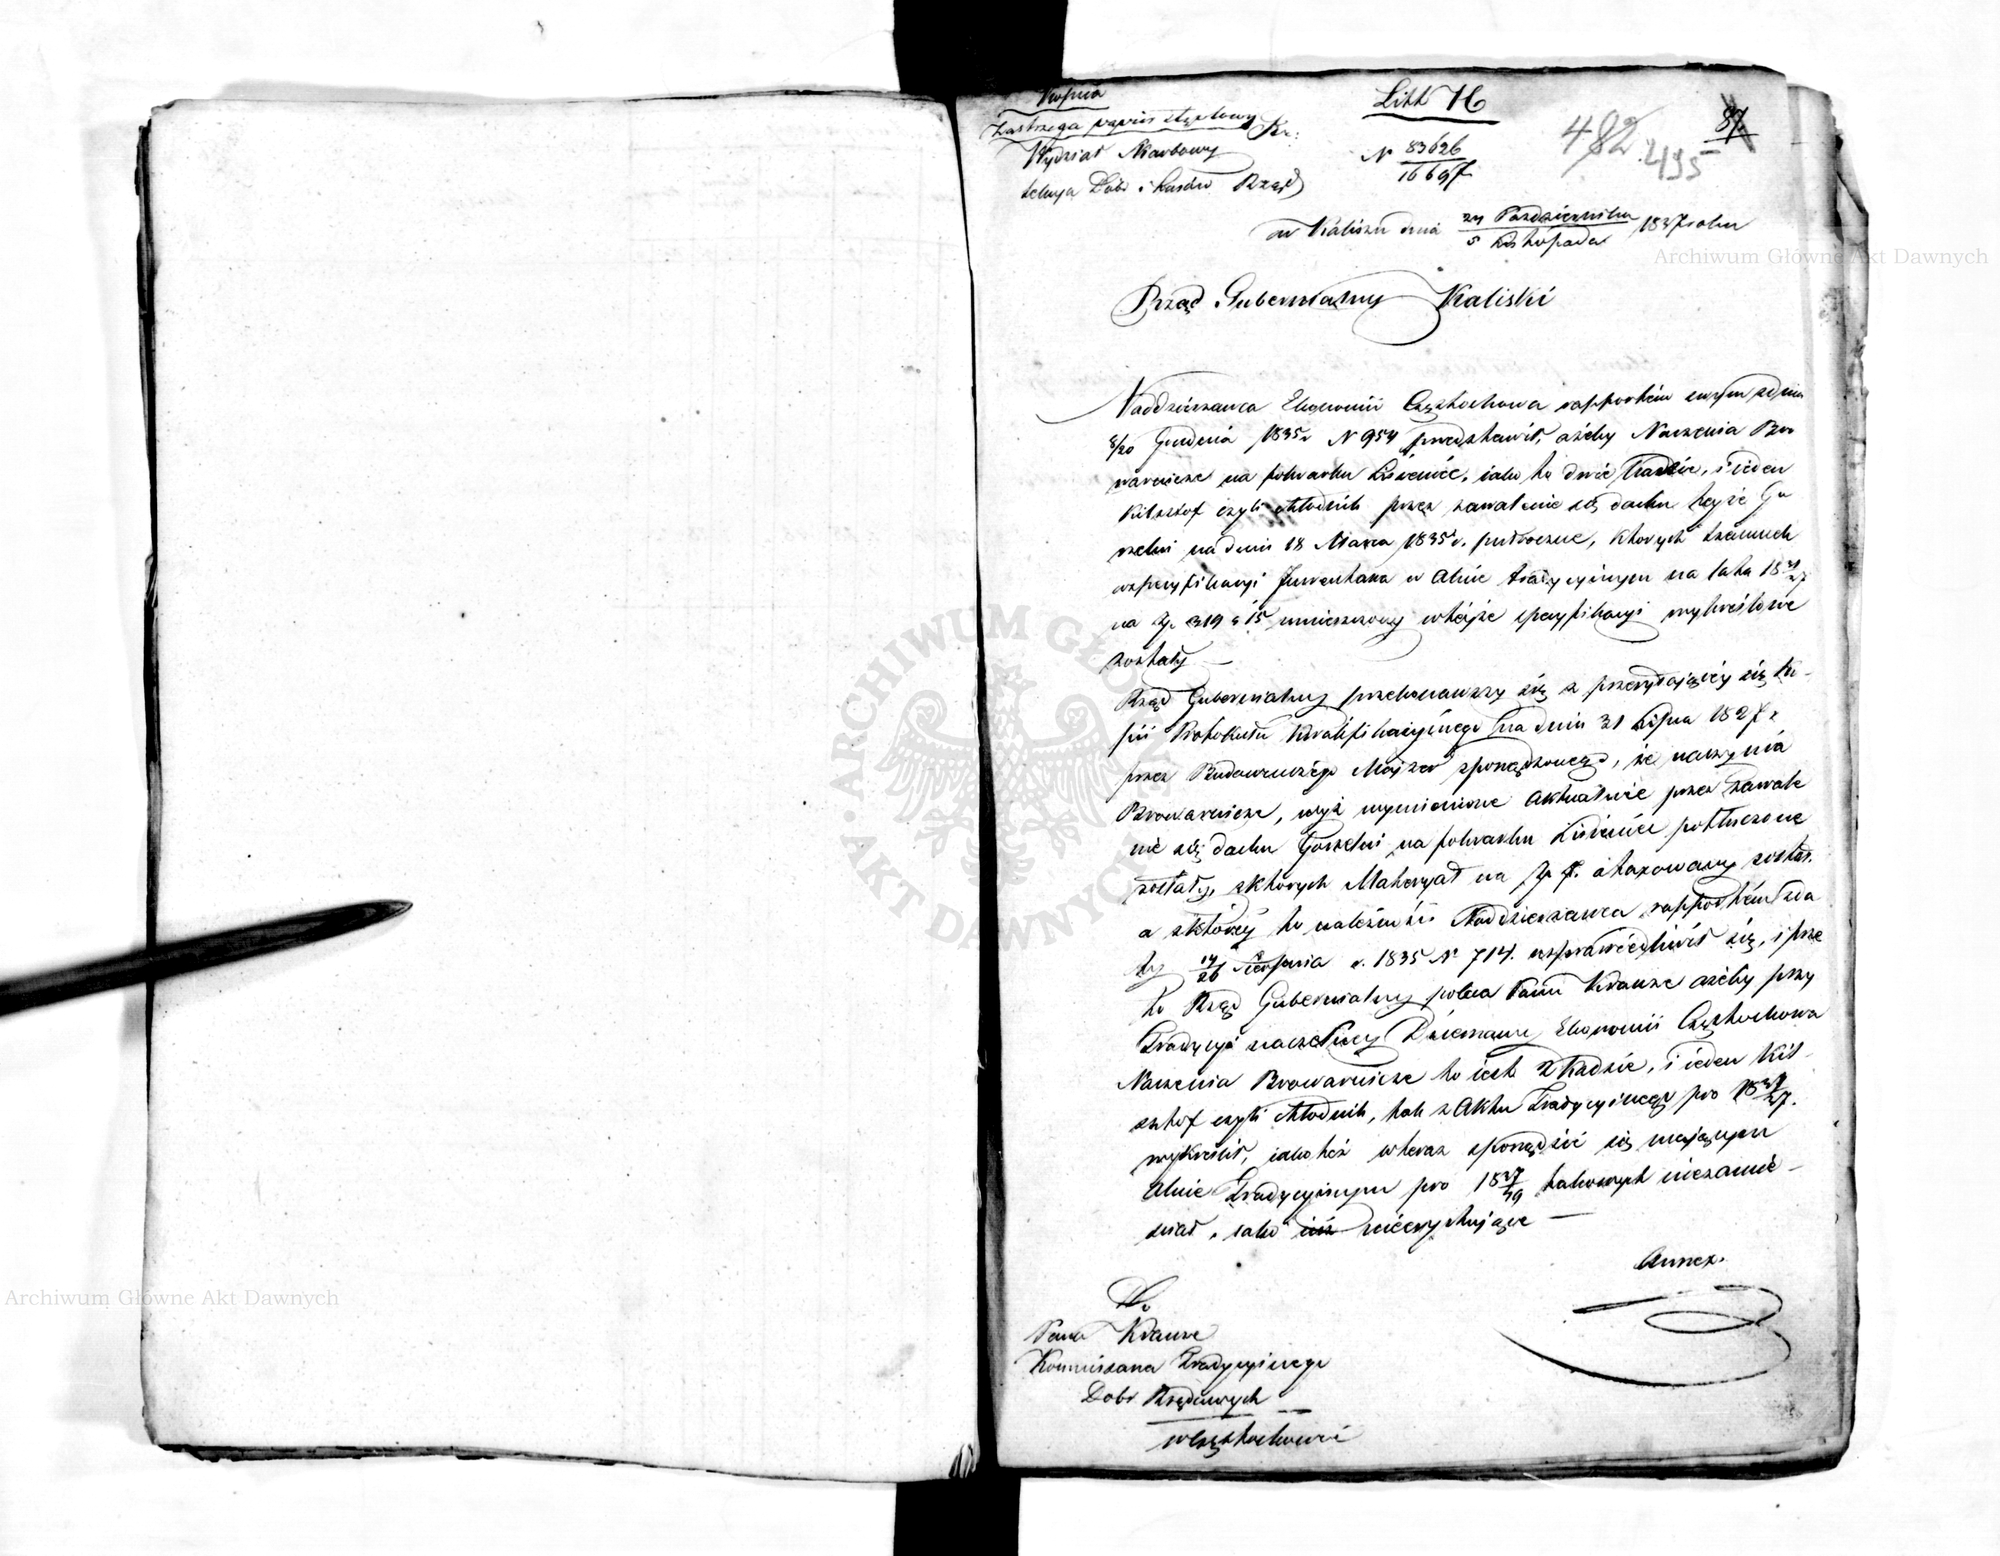 Kopia
Zastrzega papier stęplowy Kr:
Wydział Skarbowy
Sekcya Dóbr i Lasów Rząd
Litt H
N 83626/16697
482 495
87
w Kaliszu dnia 24 Października/5 Listopada 1837 roku
Rząd Gubernialny Kaliski
Naddzierżawca Ekonomii Częstochowa rapportem swym z dnia
8/20 Grudnia 1835 r N 954 przedstawił, ażeby Naczenia Bro
warnicze na folwarku Lisieniec, iako to dwie kadzie, i ieden
Kilsztof czyli chłodnik przez zawalenie się dachu tejże Go
rzelni na dniu 18 Marca 1835 r. potłoczone, których szacunek
w specyfikacyi Inwentarza w Akcie tradycyinym na lata 18
na Zp. 319 g 15 umieszczony w tejże specyfikacyi wykreślone
zostały —
Rząd Gubernialny przekonawszy się z przesyłającey się ko-
pii Protokułu Kwalifikacyinego na dniu 31 Lipca 1827 r
przez Budowniczego Majzer sporządzonego, że naczynia
Browarnicze, wyż wymienione aktualnie przez zawale
nie się dachu Gorzelni na folwarku Lisieniec potłuczone
zostały, z których Materyał na Zp otaxowany został.
a z którey to należności Naddzierżawca rapportem z da
ty 14/26 Sierpnia r. 1835 N 714. usprawiedliwił się, i prze
to Rząd Gubernialny poleca Panu Krauze ażeby przy
Tradycyi naczelney Dzierżawy Ekonomii Częstochowa
Naczenia Browarnicze to iest 2 kadzie, i ieden Kil-
sztof czyli chłodnik, tak z Aktu Tradycyinego pro 18
wykreślił, iako też w teraz sporządzić się maiącym
Akcie Tradycyinym pro 1837/49 takowych niezamie-
szczał, iako iuż nieexystuiące —
Annex.
Do
Pana Krauze
Kommissarza Tradycyinego
Dóbr Rządowych
w Częstochowie
Archiwum Główne Akt Dawnych
Archiwum Główne Akt Dawnych
ARCHIWUM GŁÓWNE AKT DAWNYCH